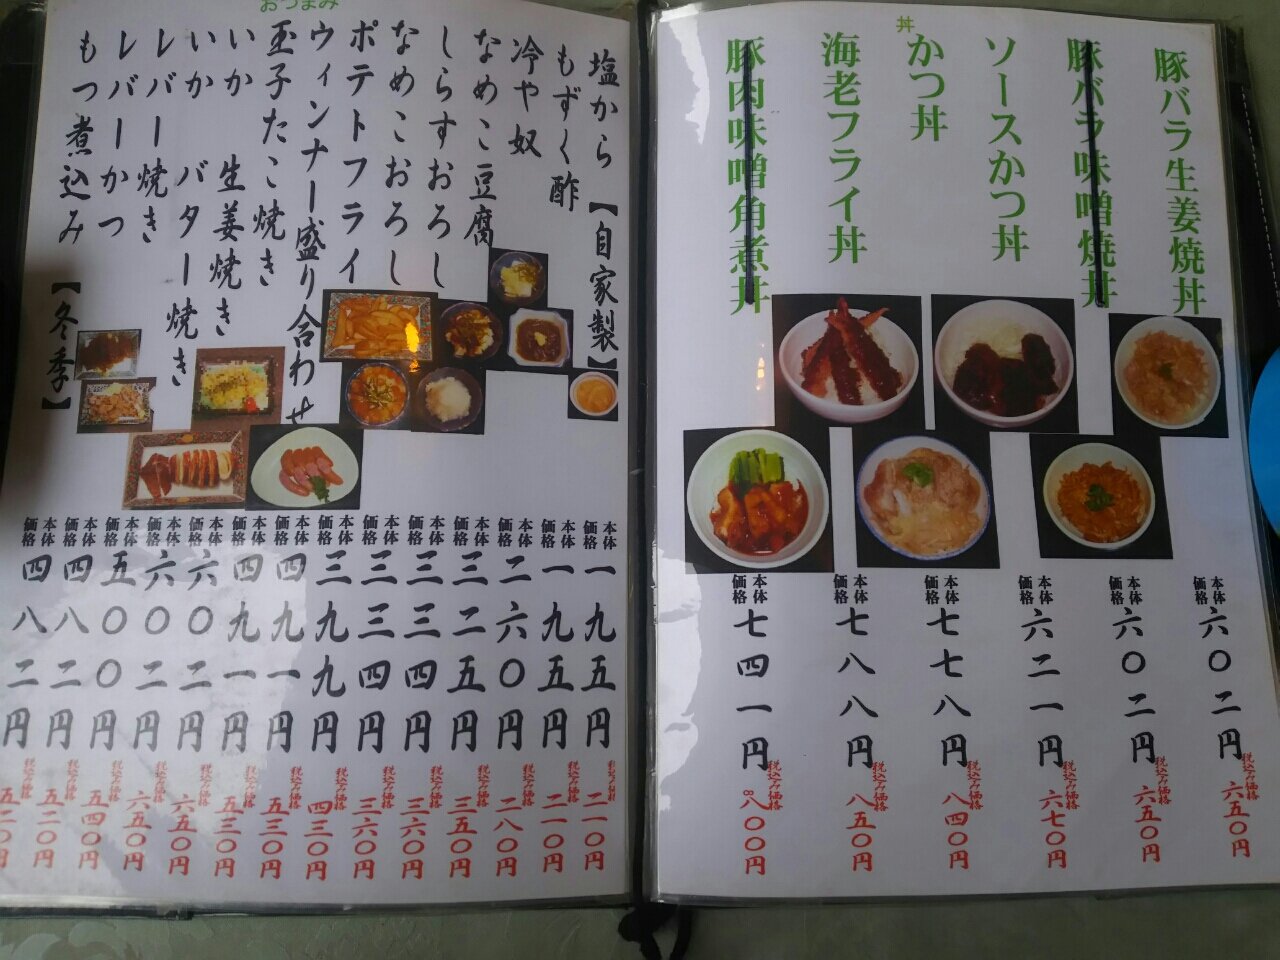 丼
豚バラ生姜焼丼 本体価格 六〇二円 税込み価格 六五〇円
豚バラ味噌焼丼 本体価格 六〇二円 税込み価格 六五〇円
ソースかつ丼 本体価格 六二一円 税込み価格 六七〇円
かつ丼 本体価格 七七八円 税込み価格 八四〇円
海老フライ丼 本体価格 七八八円 税込み価格 八五〇円
豚肉味噌角煮丼 本体価格 七四一円 税込み価格 八〇〇円
おつまみ
塩から【自家製】 本体価格 一九五円 税込み価格 二一〇円
もずく酢 本体価格 一九五円 税込み価格 二一〇円
冷や奴 本体価格 二六〇円 税込み価格 二八〇円
なめこ豆腐 本体価格 三二五円 税込み価格 三五〇円
しらすおろし 本体価格 三三四円 税込み価格 三六〇円
なめこおろし 本体価格 三三四円 税込み価格 三六〇円
ポテトフライ 本体価格 三九九円 税込み価格 四三〇円
ウィンナー盛り合わせ 本体価格 四九一円 税込み価格 五三〇円
玉子たこ焼き 本体価格 四九一円 税込み価格 五三〇円
いか 生姜焼き 本体価格 六〇二円 税込み価格 六五〇円
いか バター焼き 本体価格 六〇二円 税込み価格 六五〇円
レバー焼き 本体価格 五〇〇円 税込み価格 五四〇円
レバーかつ 本体価格 四八二円 税込み価格 五二〇円
もつ煮込み【冬季】 本体価格 四八二円 五二〇円